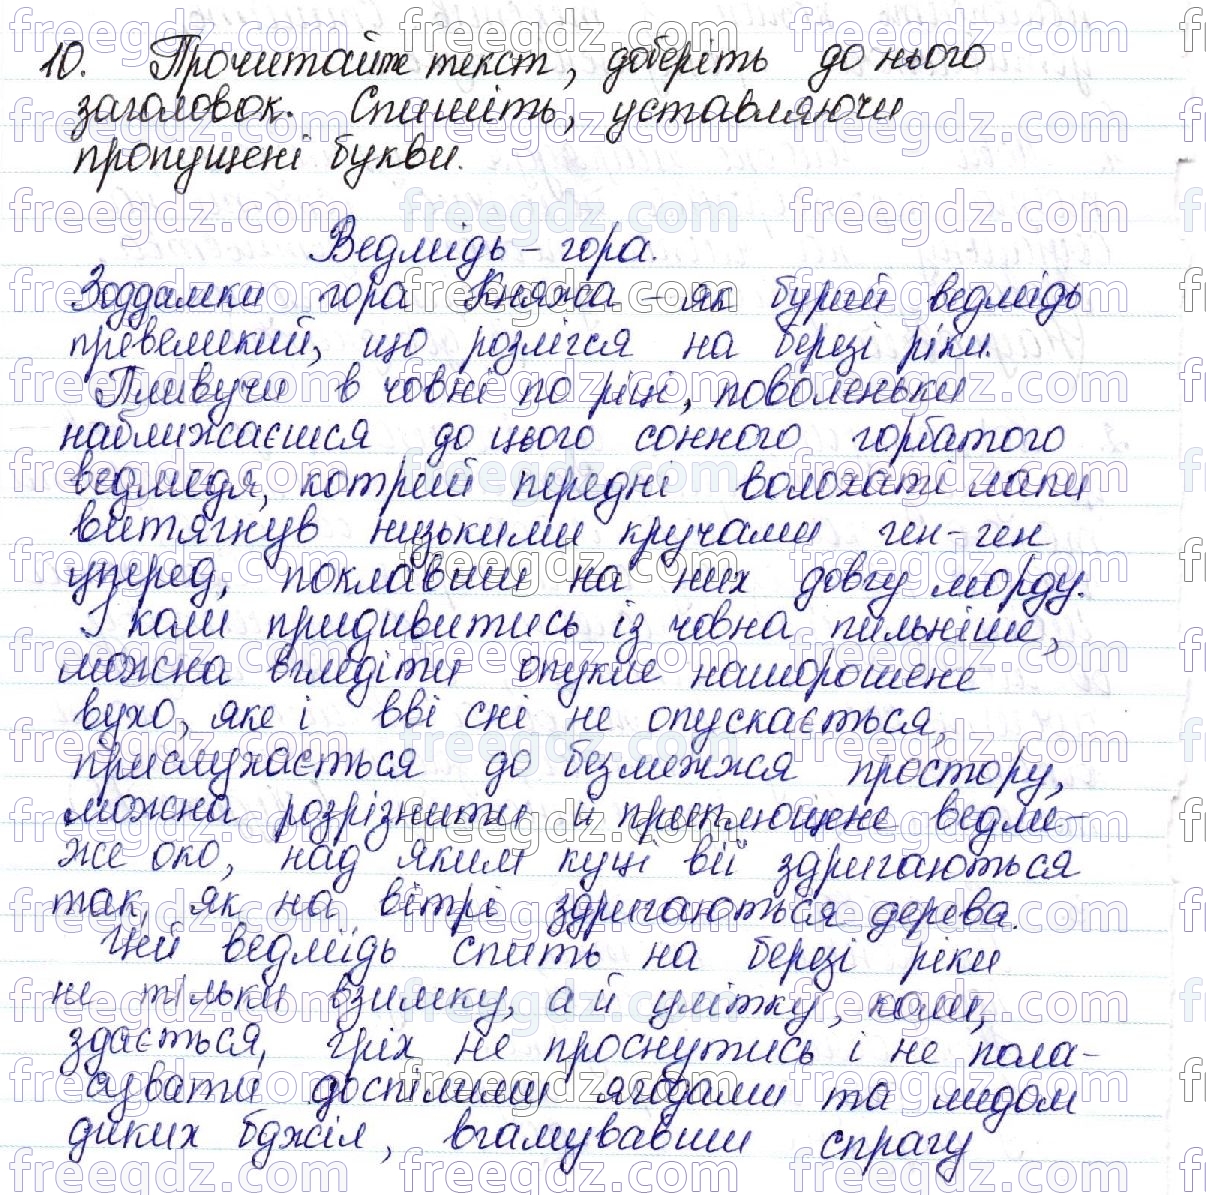 10. Прочитайте текст, доберіть до нього
заголовок. Спишіть, уставляючи
пропущені букви.
Ведмідь – гора.
Зоддамки гора Княжа – як бурий ведмідь
превеликий, що розлігся на березі ріки.
Пливучи в човні по ріці, поволеньки
наближаєшся до цього сонного горбатого
ведмедя, котрий передні волохаті лапи
витягнув низькими кручами ген-ген
уперед, поклавши на них довгу морду.
І коли придивитись із човна пильніше,
можна вгледіти опукле нашорошене
вухо, яке і вві сні не опускається,
прислухається до безмежжя простору,
можна розрізнити й приплющене ведме-
же око, над яким куці вії здригаються
так, як на вітрі здригаються дерева.
Цей ведмідь спить на березі ріки
не тільки взимку, а й улітку, коли,
здається, гріх не проснутись і не пола-
сувати доспілими ягодами та медом
диких бджіл, вгамувавши спрагу